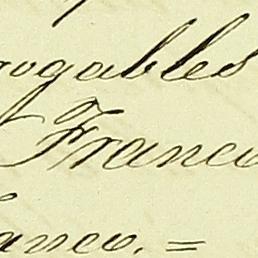 rogables
Franco
anco. =